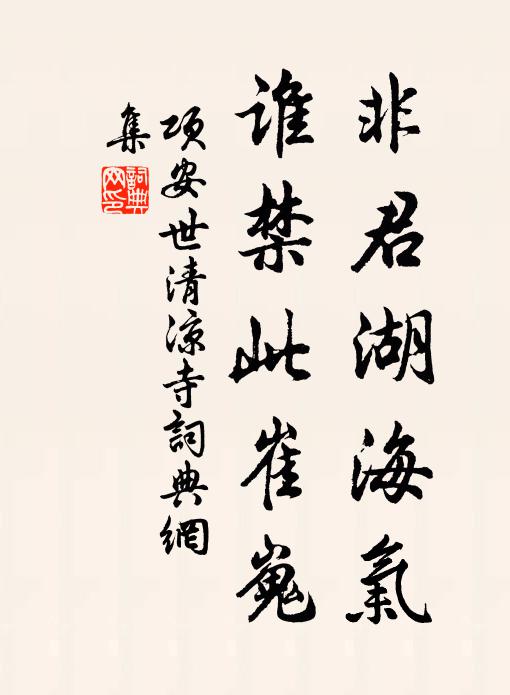 非君湖海氣
誰禁此崔嵬
項安世清凉寺詞典網
集
詞典網印